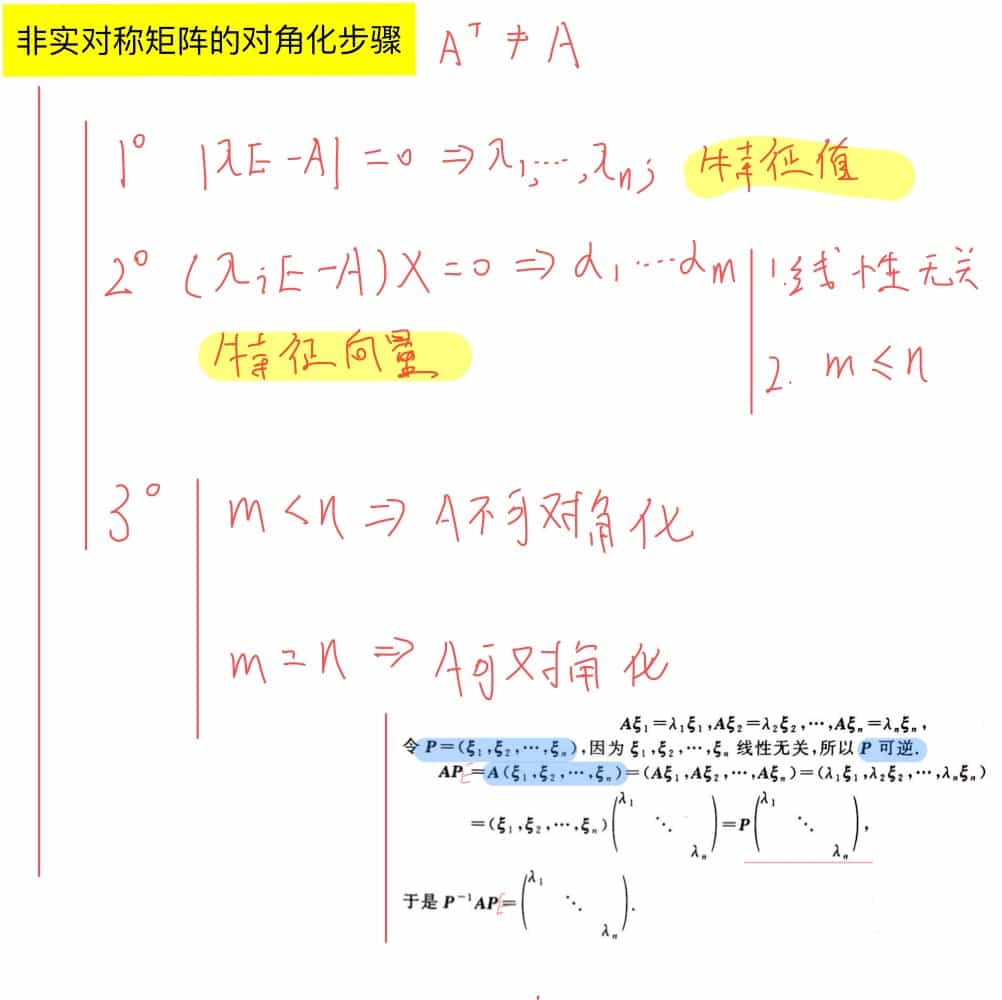 非实对称矩阵的对角化步骤 Aᵀ ≠ A
1° |λE-A|=0 ⇒ λ₁,…,λₙ; 特征值
2° (λᵢE-A)X=0 ⇒ α₁…αₘ 1.线性无关
特征向量 2. m≤n
3° m<n ⇒ A不可对角化
m=n ⇒ A可对角化
Aξ₁=λ₁ξ₁,Aξ₂=λ₂ξ₂,…,Aξₙ=λₙξₙ,
令 P=(ξ₁,ξ₂,…,ξₙ),因为 ξ₁,ξ₂,…,ξₙ 线性无关,所以 P 可逆.
AP=A(ξ₁,ξ₂,…,ξₙ)=(Aξ₁,Aξ₂,…,Aξₙ)=(λ₁ξ₁,λ₂ξ₂,…,λₙξₙ)
=(ξ₁,ξ₂,…,ξₙ)(λ₁ ⋱ λₙ)=P(λ₁ ⋱ λₙ),
于是 P⁻¹AP=(λ₁ ⋱ λₙ).